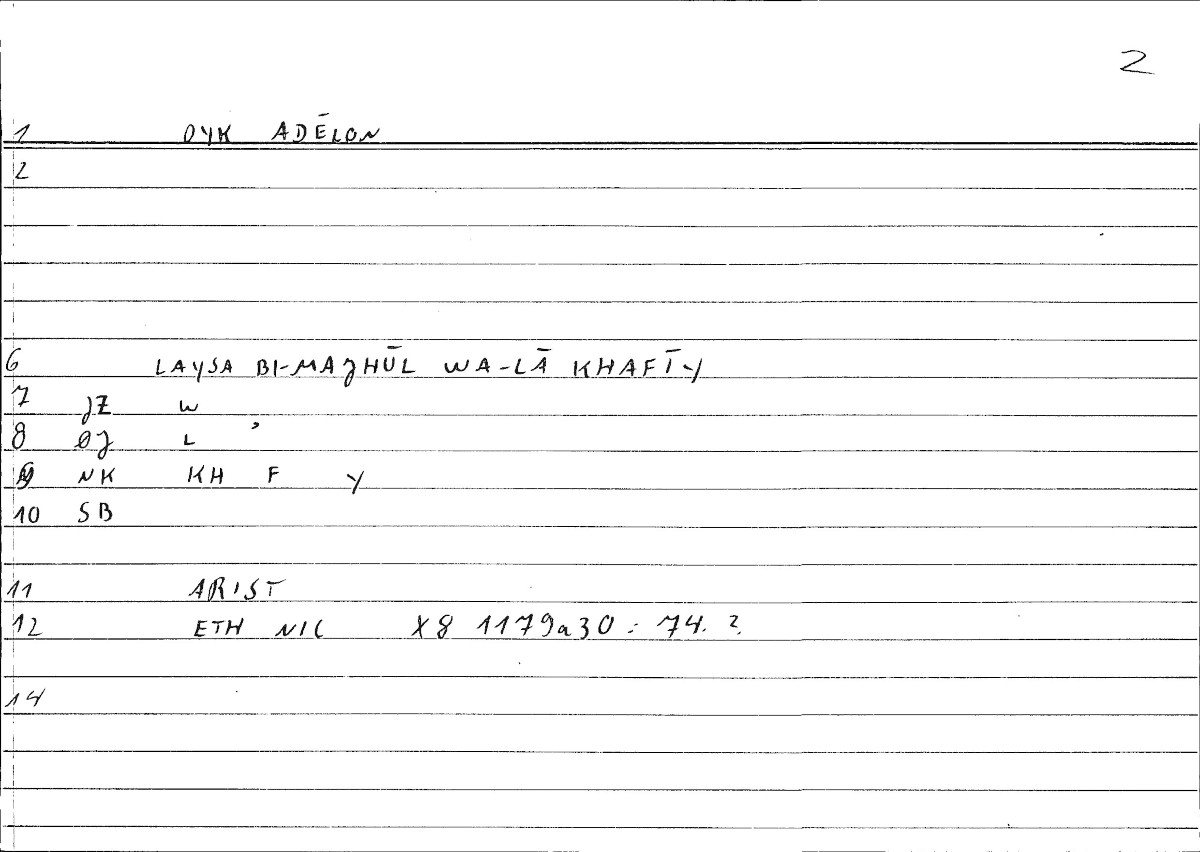 2
1 OYK ADĒLON
2
6 LAYSA BI-MAJHŪL WA-LĀ KHAFĪY
7 JZ W
8 ØJ L ʾ
9 NK KH F Y
10 SB
11 ARIST
12 ETH NIC X8 1179a30 : 74. 2.
14